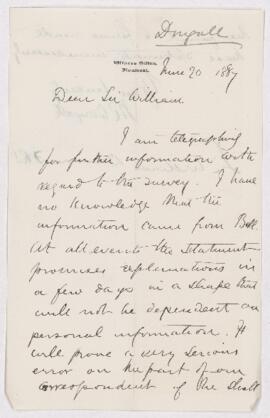 Dougall
Witness Office,
Montreal.
June 20 1887
Dear Sir William
I am telegraphing
for further information with
regard to the survey. I have
no knowledge that the
information came from Bell.
At all events the statement
promises explanations in
a few days in a shape that
will not be dependent on
personal information. It
will prove a very serious
error on the part of our
correspondent if he shall